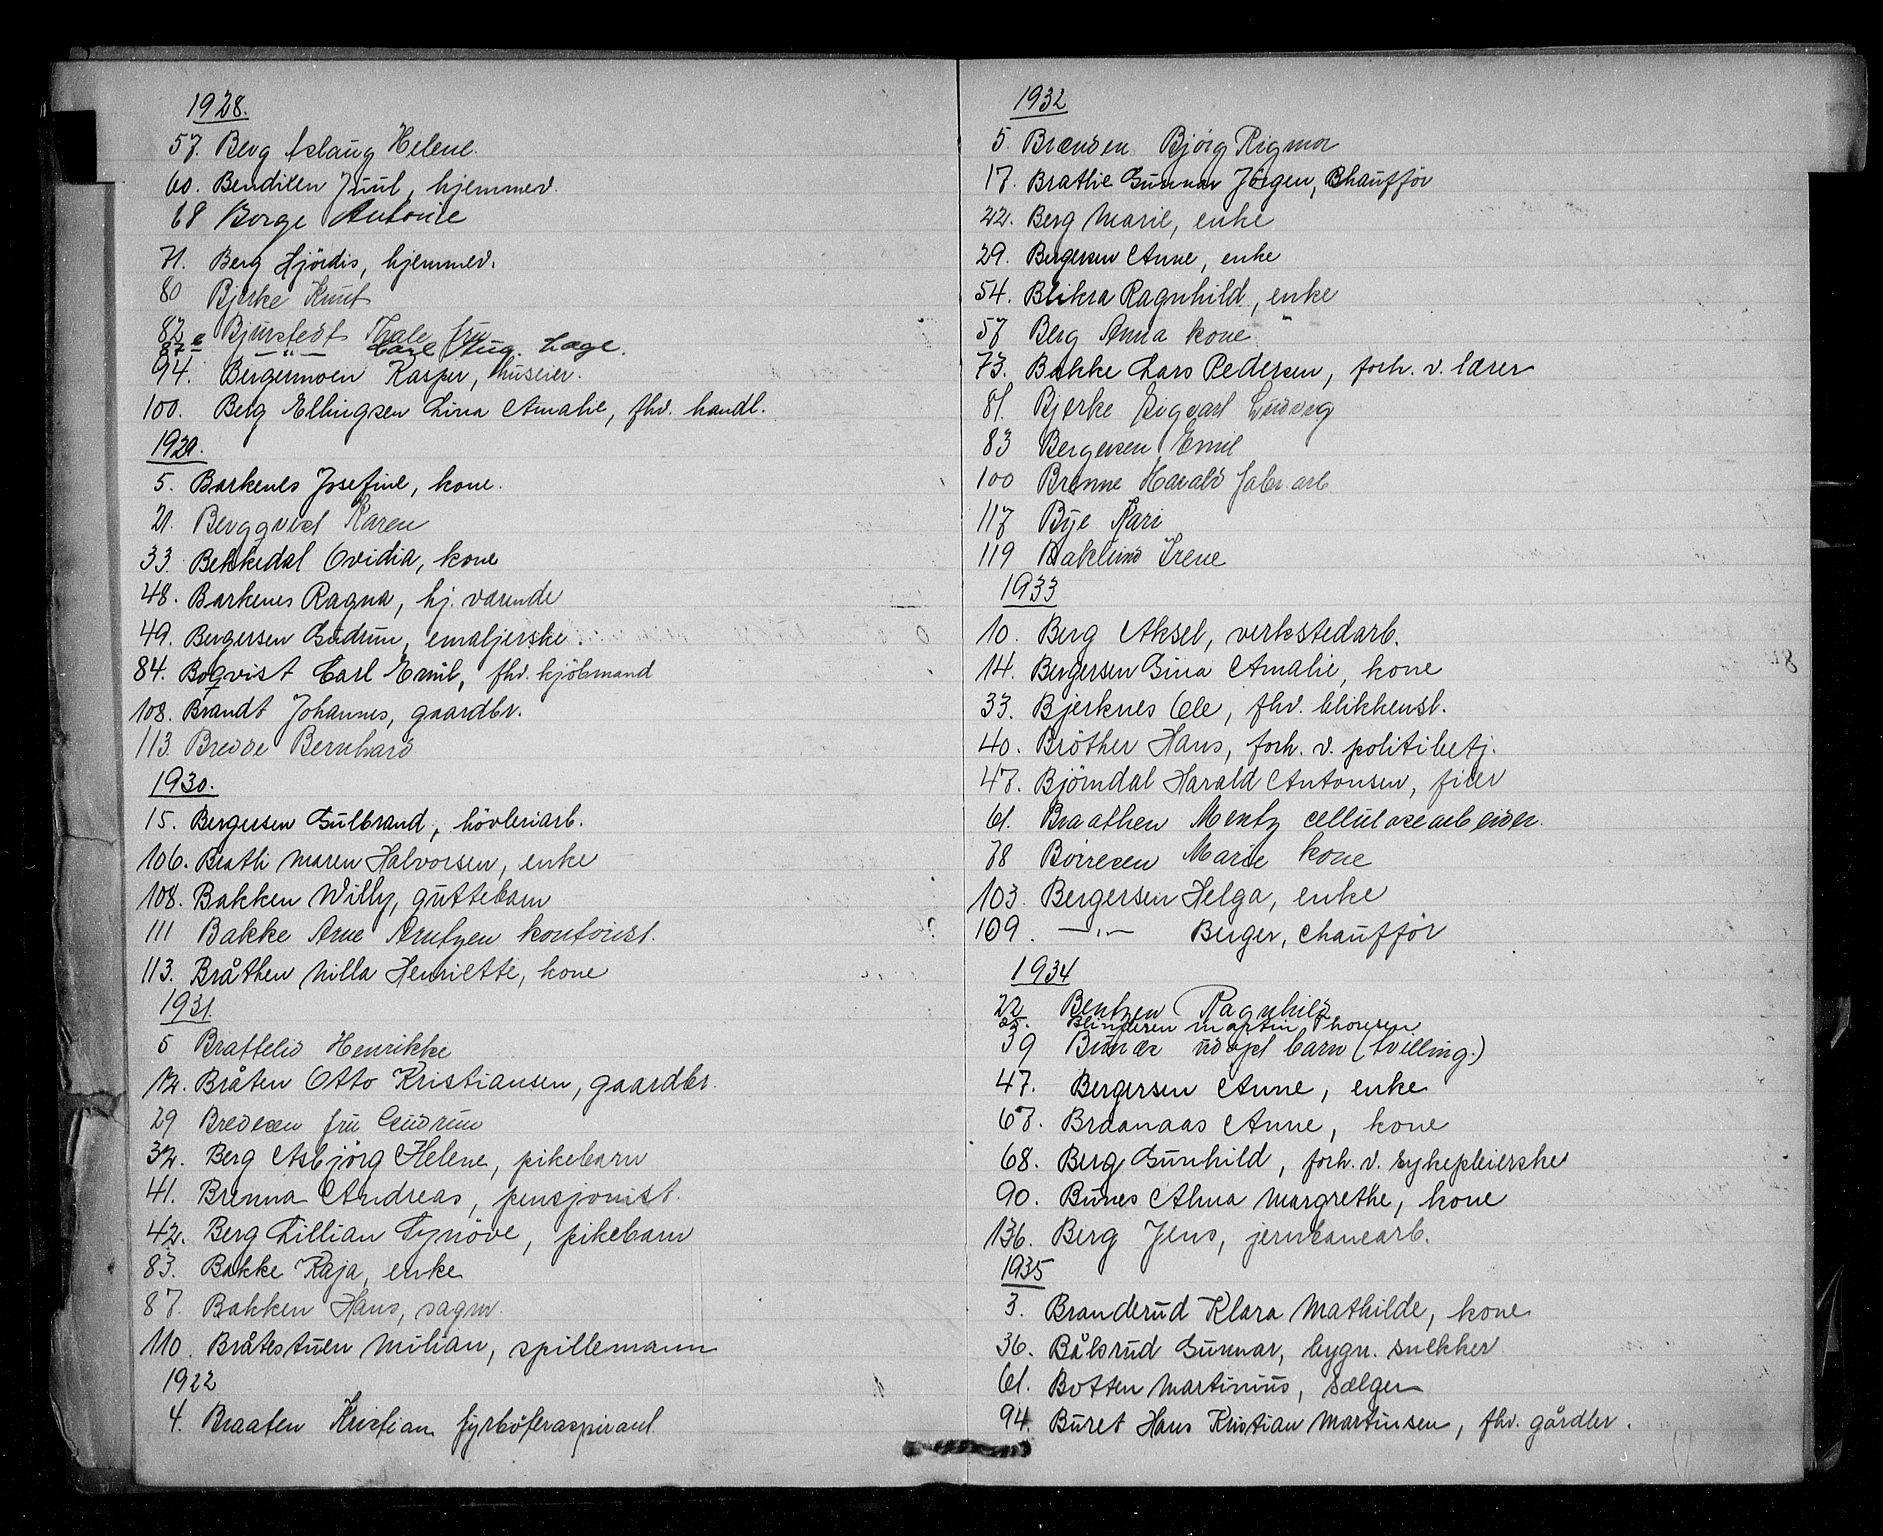 1928.
57. Berg Aslaug Helene.
60. Bendixen Juul, hjemmev.
68 Borge Antonie
71. Berg Hjördis, hjemmev.
80 Bjerke Knut
82 Bjurstedt Thale fru
87 — " — Carl Aug. Læge.
94. Bergermoen Kasper, huseier.
100. Berg Ellingsen Lina Amalie, fhv. handl.
1929.
5. Barkenes Josefine, kone.
21. Bergqvist Karen
33. Bekkedal Ovidia, kone
48. Barkenes Ragna, hj. værende
49. Bergersen Gudrun, emaljerske.
84. Boqvist Carl Emil, fhv. kjöbmand
108. Brandt Johannes, gaardbr.
113. Bredde Bernhard
1930.
15. Bergersen Gulbrand, hövleriarb.
106. Brathi Maren Halvorsen, enke
108. Bakken Willy, guttebarn
111 Bakke Arne Arntzen kontorist.
113. Bråthen Milla Henriette, kone
1931.
5 Brattelid Henrikke
12. Bråten Otto Kristiansen, gaardbr.
29 Bredesen fru Gudrun
32. Berg Asbjörg Helene, pikebarn
41. Brenna Andreas, pensjonist.
42. Berg Lillian Synöve, pikebarn
83. Bakke Kaja, enke
87. Bakken Hans, sagm.
110. Bråtestuen Milian, spillemann
1922
4. Braaten Kristian fyrböteraspirant
1932
5. Brænden Bjørg Rigmor
17. Brathe Gunnar Jörgen, Chauffór
22. Berg Marie, enke
29. Bergersen Anne, enke
54. Blikra Ragnhild, enke
57 Berg Anna kone
73. Bakke Lars Pedersen, forh. v. lærer
81. Bjerke Sigvart Ludvig
83 Bergersen Emil
100 Brenne Harald fabr. arb.
117 Bye Kari
119 Baklund Irene
1933
10. Berg Aksel, verkstedarb.
14. Bergersen Gina Amalie, kone
33. Bjerknes Ole, fhv. blikkensl.
40. Bröther Hans, forh. v. politibetj.
47. Björndal Harald Antonsen, filer
61. Braathen Mentz cellulosearbeider.
78 Børresen Marie kone
103. Bergersen Helga, enke
109. — " — Birger, chauffør
1934
22 Bentzen Ragnhild
25. Martin Thoresen
39 Bunæs udøpt barn (tvilling.)
47. Bergersen Anne, enke
67. Braanaas Anne, kone
68. Berg Gunhild, forh. v. sykepleierske
90. Bunes Alma Margrethe, kone
136. Berg Jens, jernbanearb.
1935
3. Branderud Klara Mathilde, kone
36. Bålsrud Gunnar, bygn. snekker
61. Botten Martinius, sælger
94. Buret Hans Kristian Martinsen, fhv. gårdbr.